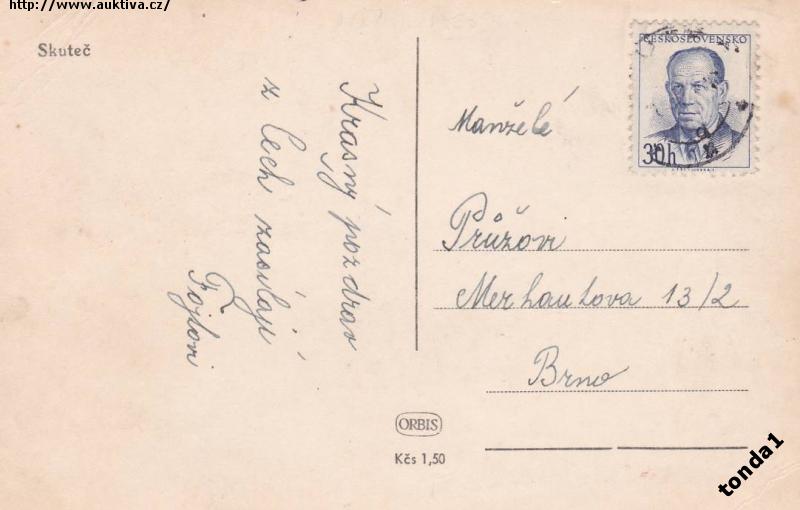 http://www.auktiva.cz/
Skuteč
Krásný pozdrav
z Čech zasílají
Fojtovi
ČESKOSLOVENSKO
30h
Manželé
Průžovi
Merhautova 13/2
Brno
ORBIS
Kčs 1,50
tonda1